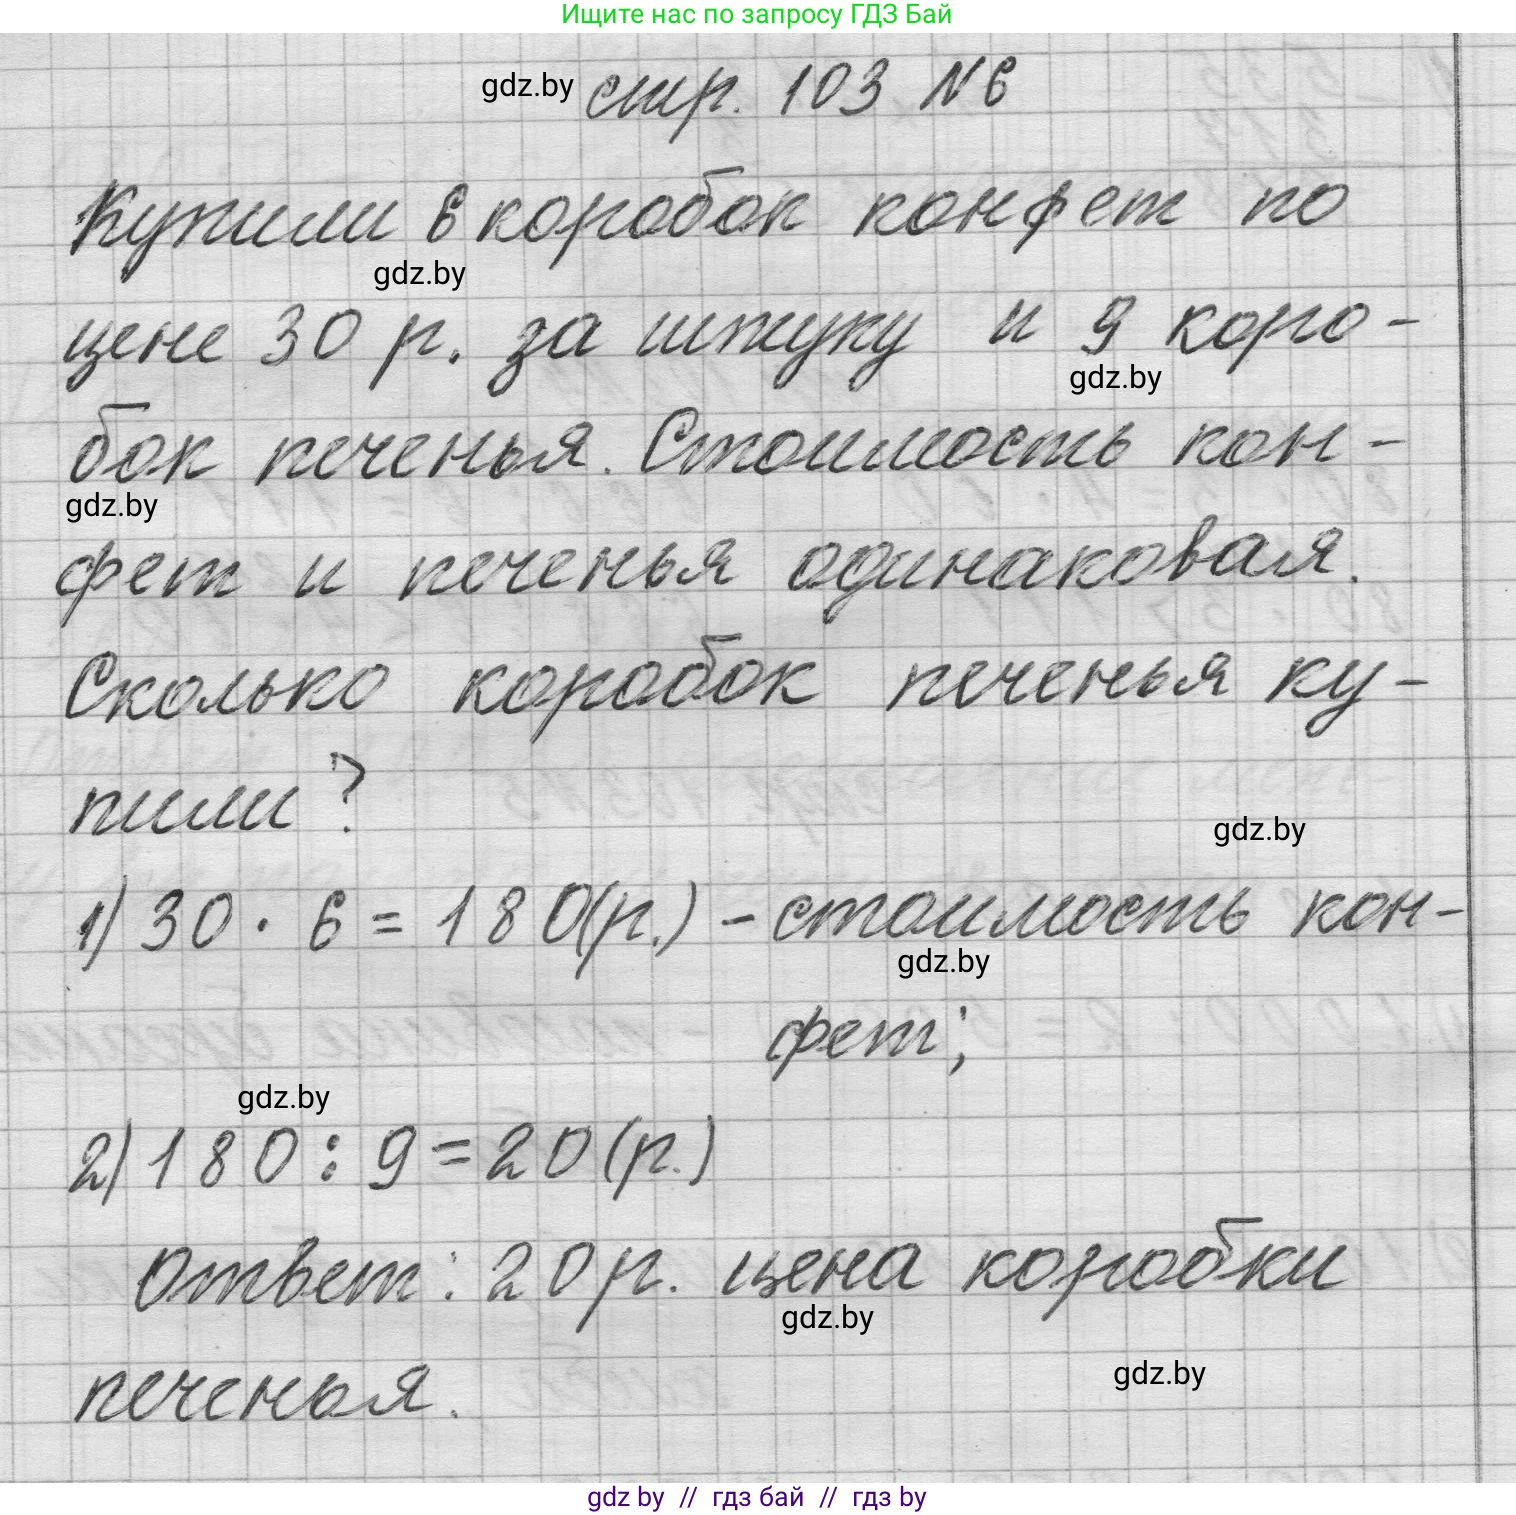 Ищите нас по запросу ГДЗ Бай
gdz.by
стр. 103 №6
Купили 6 коробок конфет по
gdz.by
цене 30 р. за штуку и 9 коро-
gdz.by
бок печенья. Стоимость кон-
gdz.by
фет и печенья одинаковая.
Сколько коробок печенья ку-
пили?
gdz.by
1) 30 · 6 = 180(р.) - стоимость кон-
gdz.by
фет;
gdz.by
2) 180 : 9 = 20 (р.)
Ответ: 20 р. цена коробки
gdz.by
gdz.by
печенья.
gdz by // гдз бай // гдз by